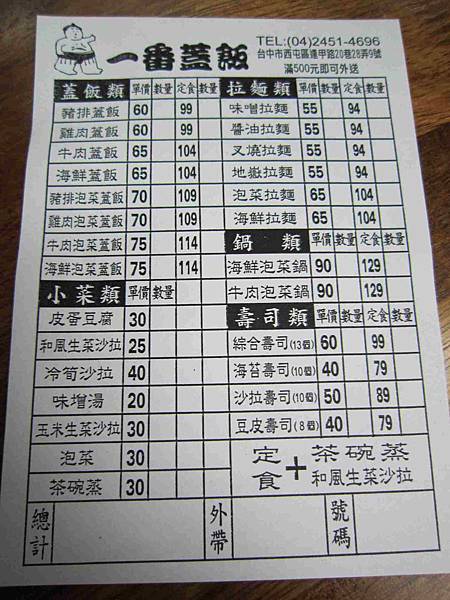 一番蓋飯
TEL:(04)2451-4696
台中市西屯區逢甲路20巷28弄9號
滿500元即可外送
蓋飯類 單價 數量 定食 數量
豬排蓋飯 60 99
雞肉蓋飯 60 99
牛肉蓋飯 65 104
海鮮蓋飯 65 104
豬排泡菜蓋飯 70 109
雞肉泡菜蓋飯 70 109
牛肉泡菜蓋飯 75 114
海鮮泡菜蓋飯 75 114
小菜類 單價 數量
皮蛋豆腐 30
和風生菜沙拉 25
冷筍沙拉 40
味增湯 20
玉米生菜沙拉 30
泡菜 30
茶碗蒸 30
拉麵類 單價 數量 定食 數量
味噌拉麵 55 94
醬油拉麵 55 94
叉燒拉麵 55 94
地嶽拉麵 55 94
泡菜拉麵 65 104
海鮮拉麵 65 104
鍋 類 單價 數量 定食 數量
海鮮泡菜鍋 90 129
牛肉泡菜鍋 90 129
壽司類 單價 數量 定食 數量
綜合壽司(13個) 60 99
海苔壽司(10個) 40 79
沙拉壽司(10個) 50 89
豆皮壽司(8個) 40 79
定食+茶碗蒸
和風生菜沙拉
總計 外帶 號碼